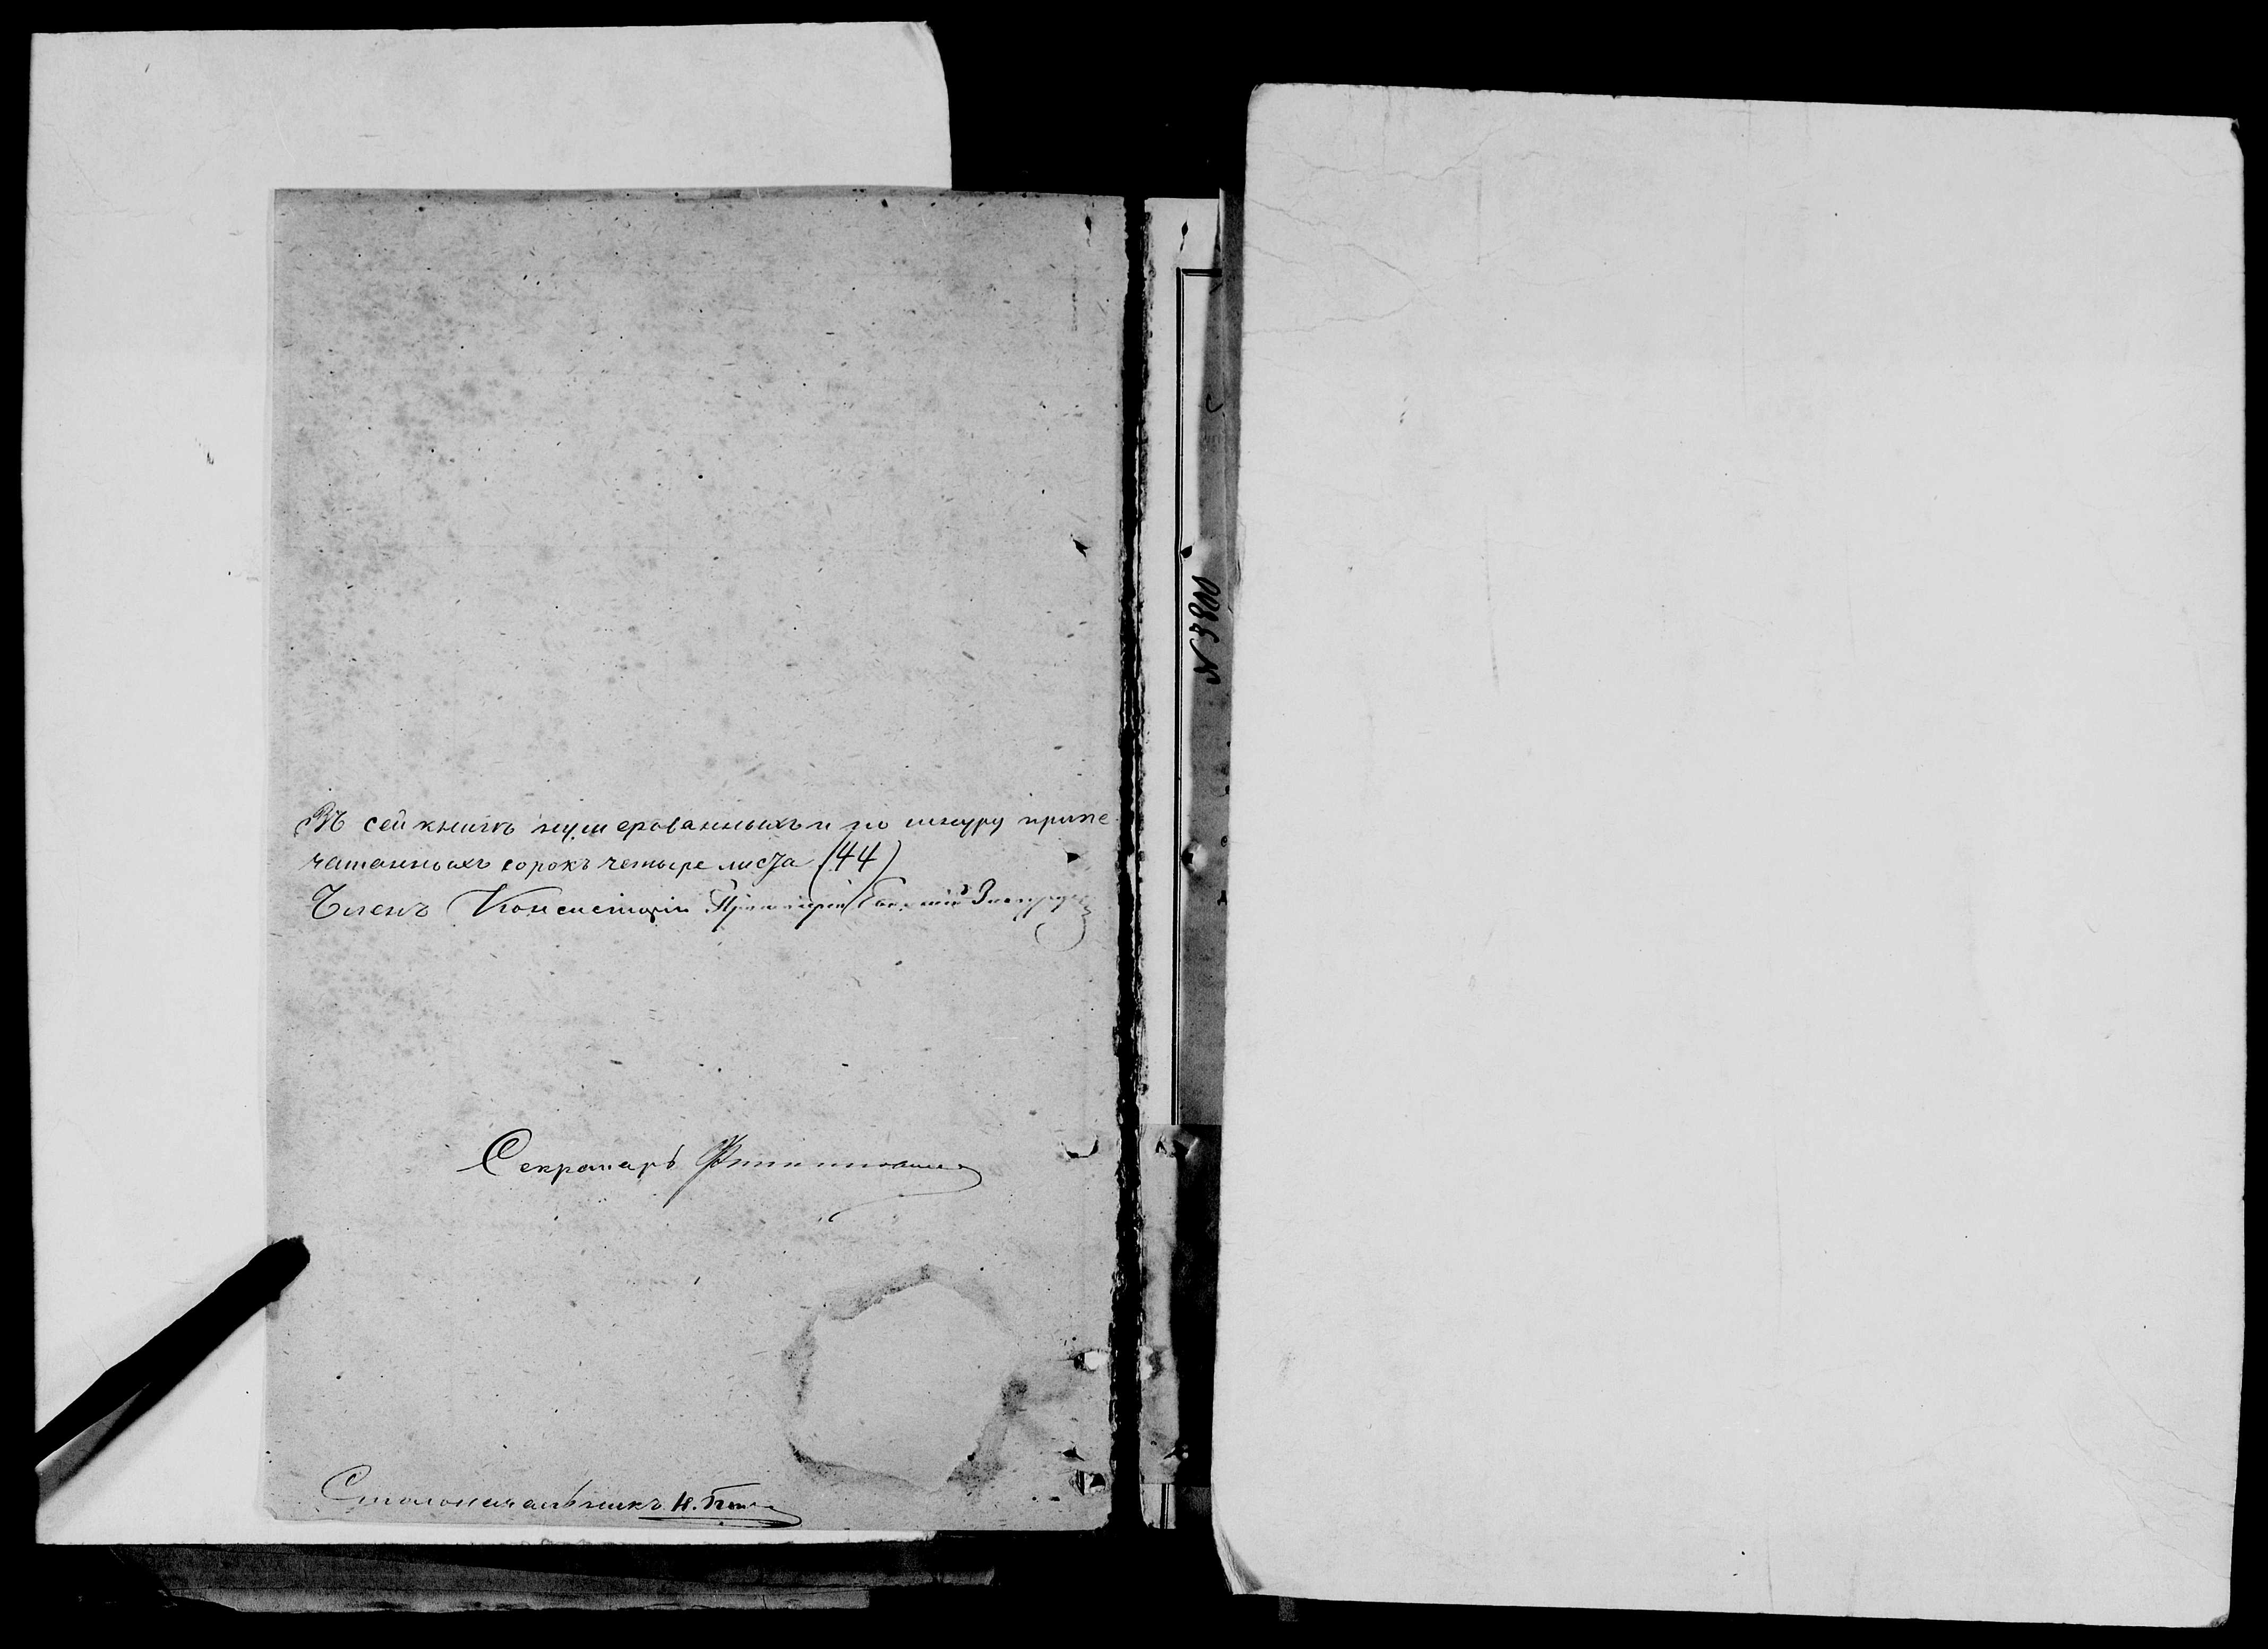 Въ сей книгѣ нумерованныхъ и по шнуру припе
чатанныхъ сорокъ четыре листа (44)
Членъ Консисторіи Протоіерей
Секретарь
Столоначальникъ Н.
N 3800